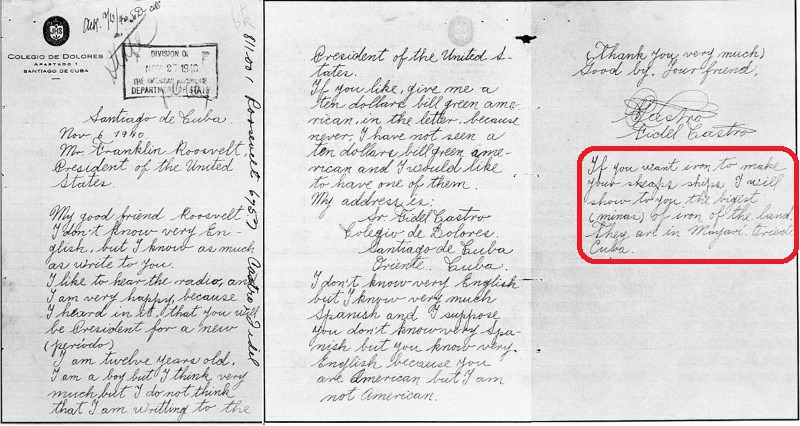 COLEGIO DE DOLORES
APARTADO 1
SANTIAGO DE CUBA
DIVISION OF
NOV 27 1940
THE AMERICAN REPUBLICS
DEPARTMENT OF STATE
Santiago de Cuba.
Nov 6 1940
Mr. Franklin Roosvelt,
President of the United
States.
My good friend Roosvelt
I don't know very En-
glish, but I know as much
as write to you.
I like to hear the radio, and
I am very happy, because
I heard in it, that you will
be President for a new
(periodo)
I am twelve years old.
I am a boy but I think very
much but I do not think
that I am writting to the
811.001 Roosevelt 6957 Castro, Fidel
President of the United S-
tates.
If you like, give me a
ten dollars bill green ame-
rican, in the letter, because
never, I have not seen a
ten dollars bill green ame-
rican and I would like
to have one of them.
My address is:
Sr. Fidel Castro
Colegio de Dolores.
Santiago de Cuba
Oriente. Cuba.
I don't know very English
but I know very much
Spanish and I suppose
you don't know very Spa-
nish but you know very
English because you
are American but I am
not American.
(Thank you very much)
Good by. Your friend,
Castro
Fidel Castro
If you want iron to make
your sheaps ships I will
show to you the bigest
(minas) of iron of the land.
They are in Mayari. Oriente
Cuba.